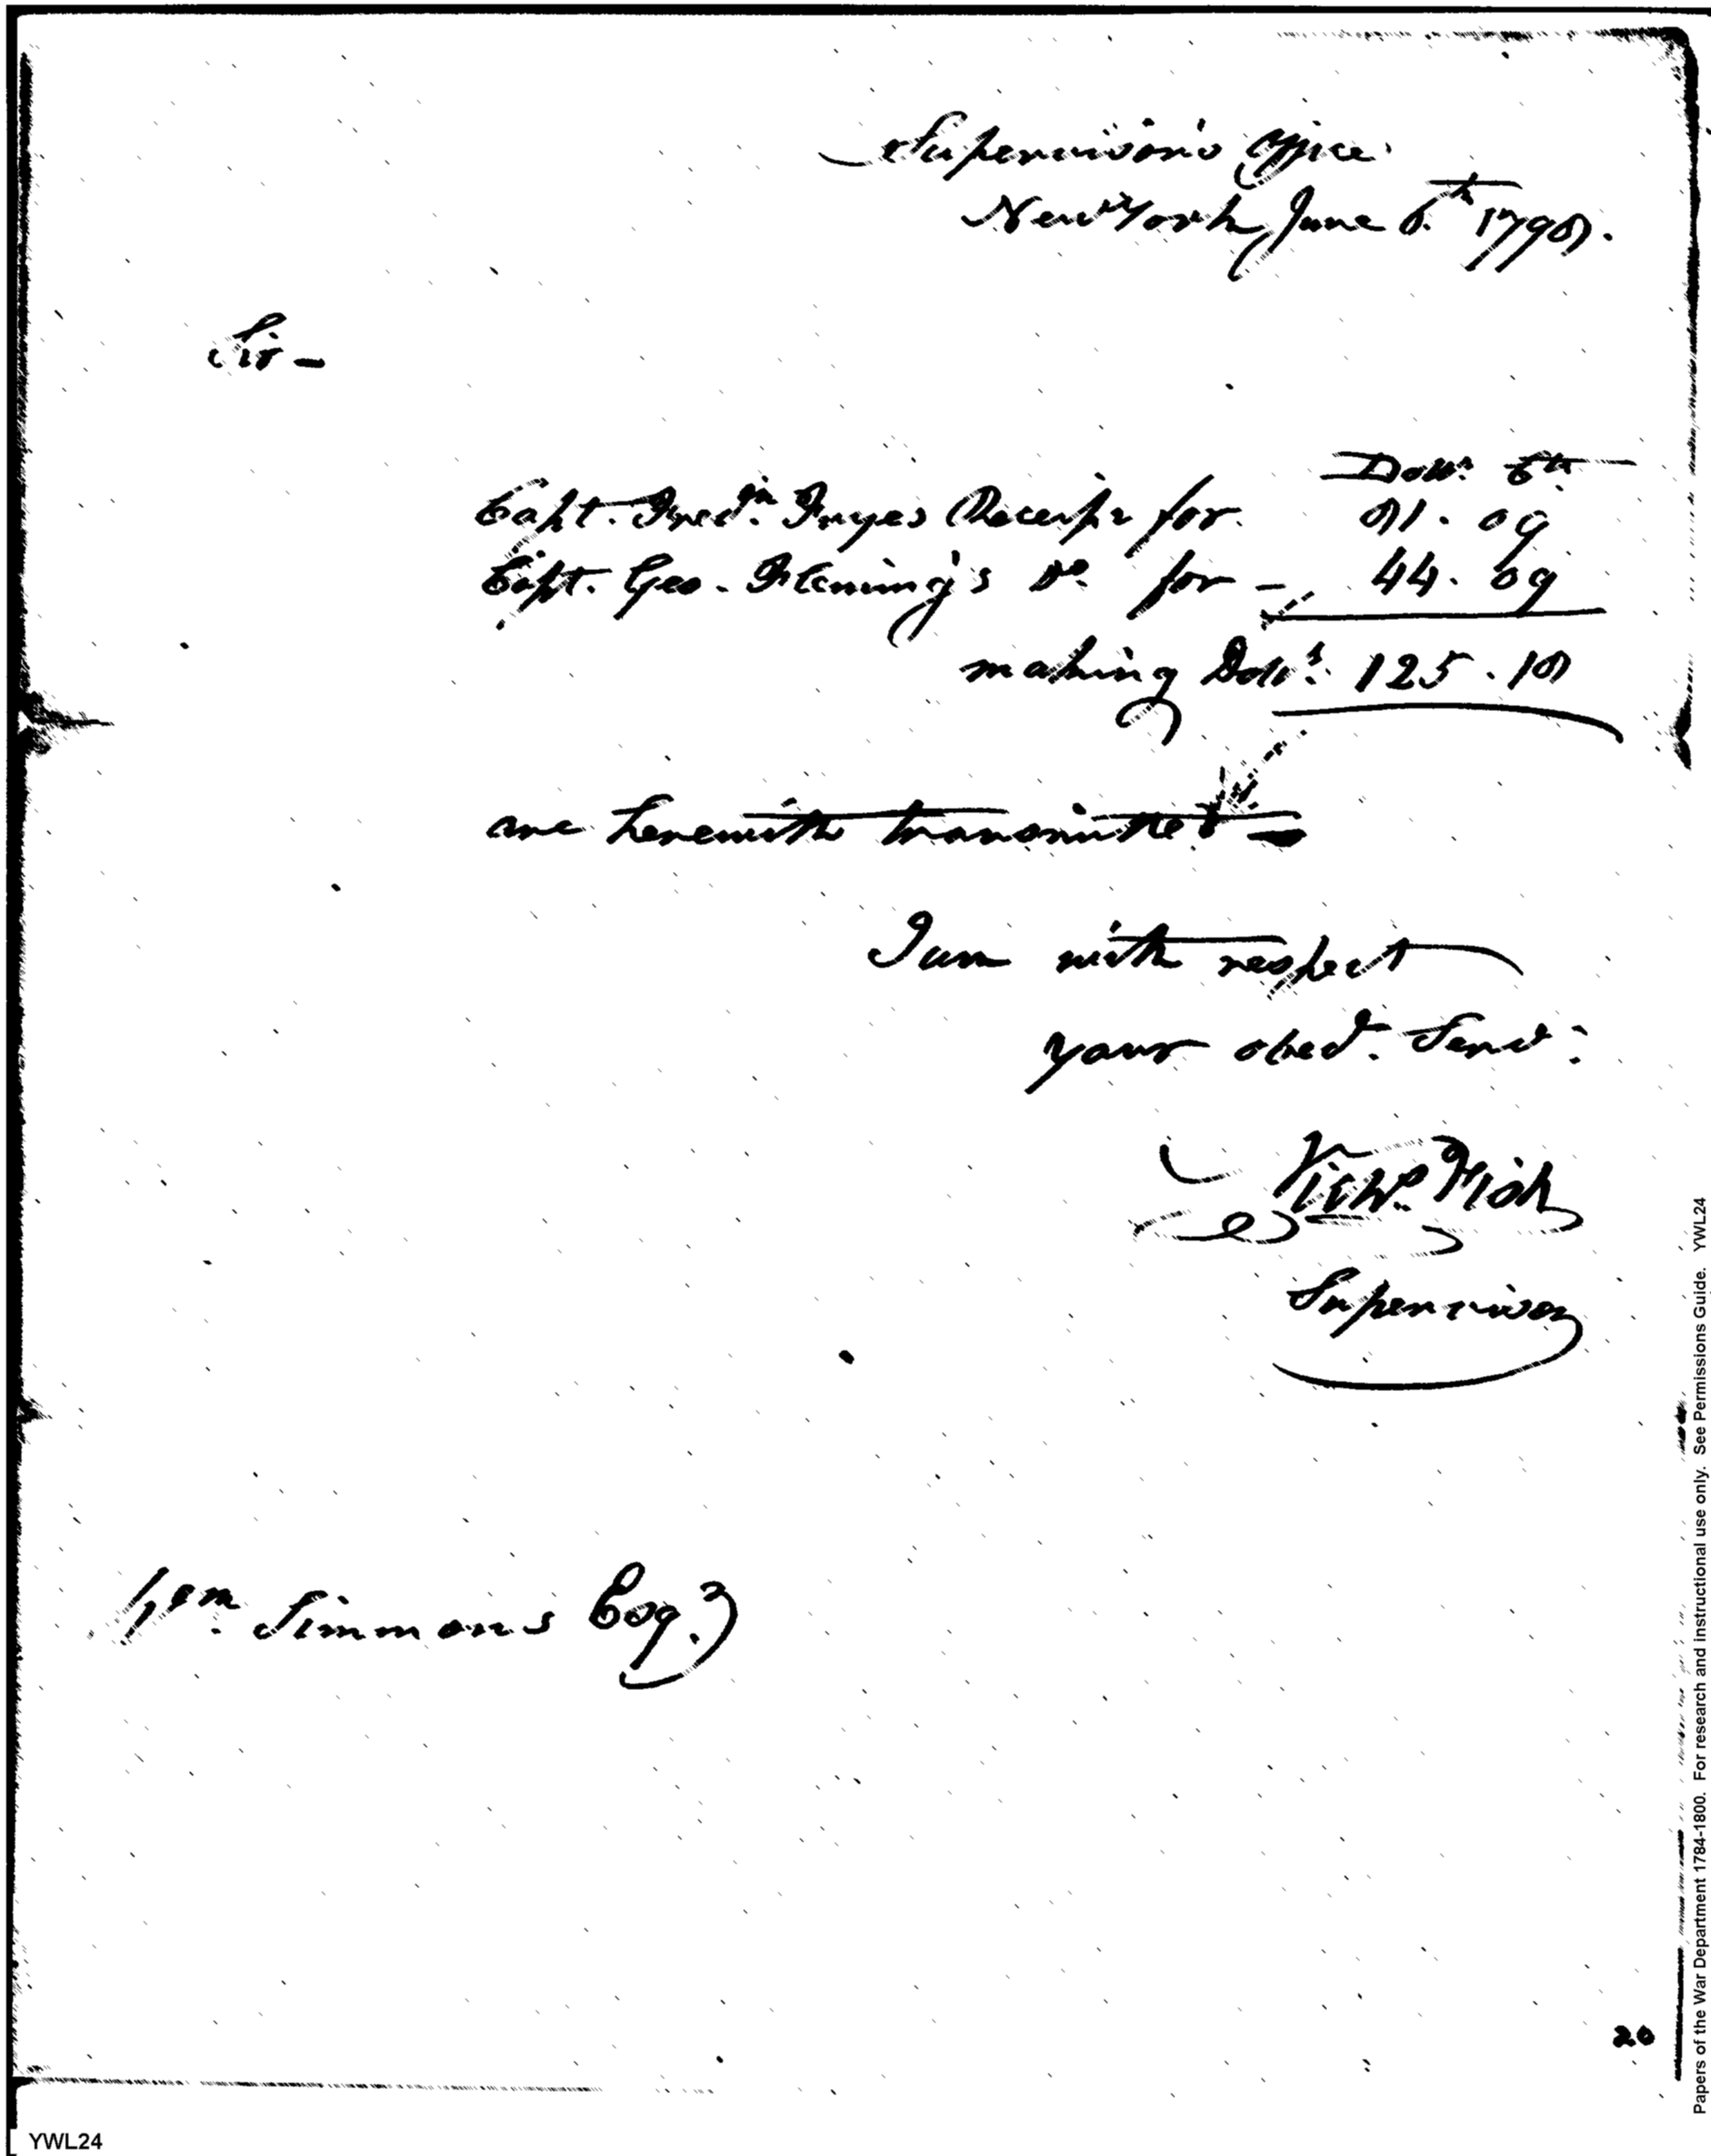 Supervisor's Office
New York June 6.th 1798.
Sir -
Doll.s Cts
Capt. Fred.k Fryes Receipt for 81.09
Capt. Geo. Fleming's Do. for - 44.09
making Doll.s 125.18
are herewith transmitted -
I am with respect
your obed.t Serv.t
Nich.s Fish
Supervisor
Wm. Simmons Esq.r
20
YWL24
Papers of the War Department 1784-1800. For research and instructional use only. See Permissions Guide. YWL24